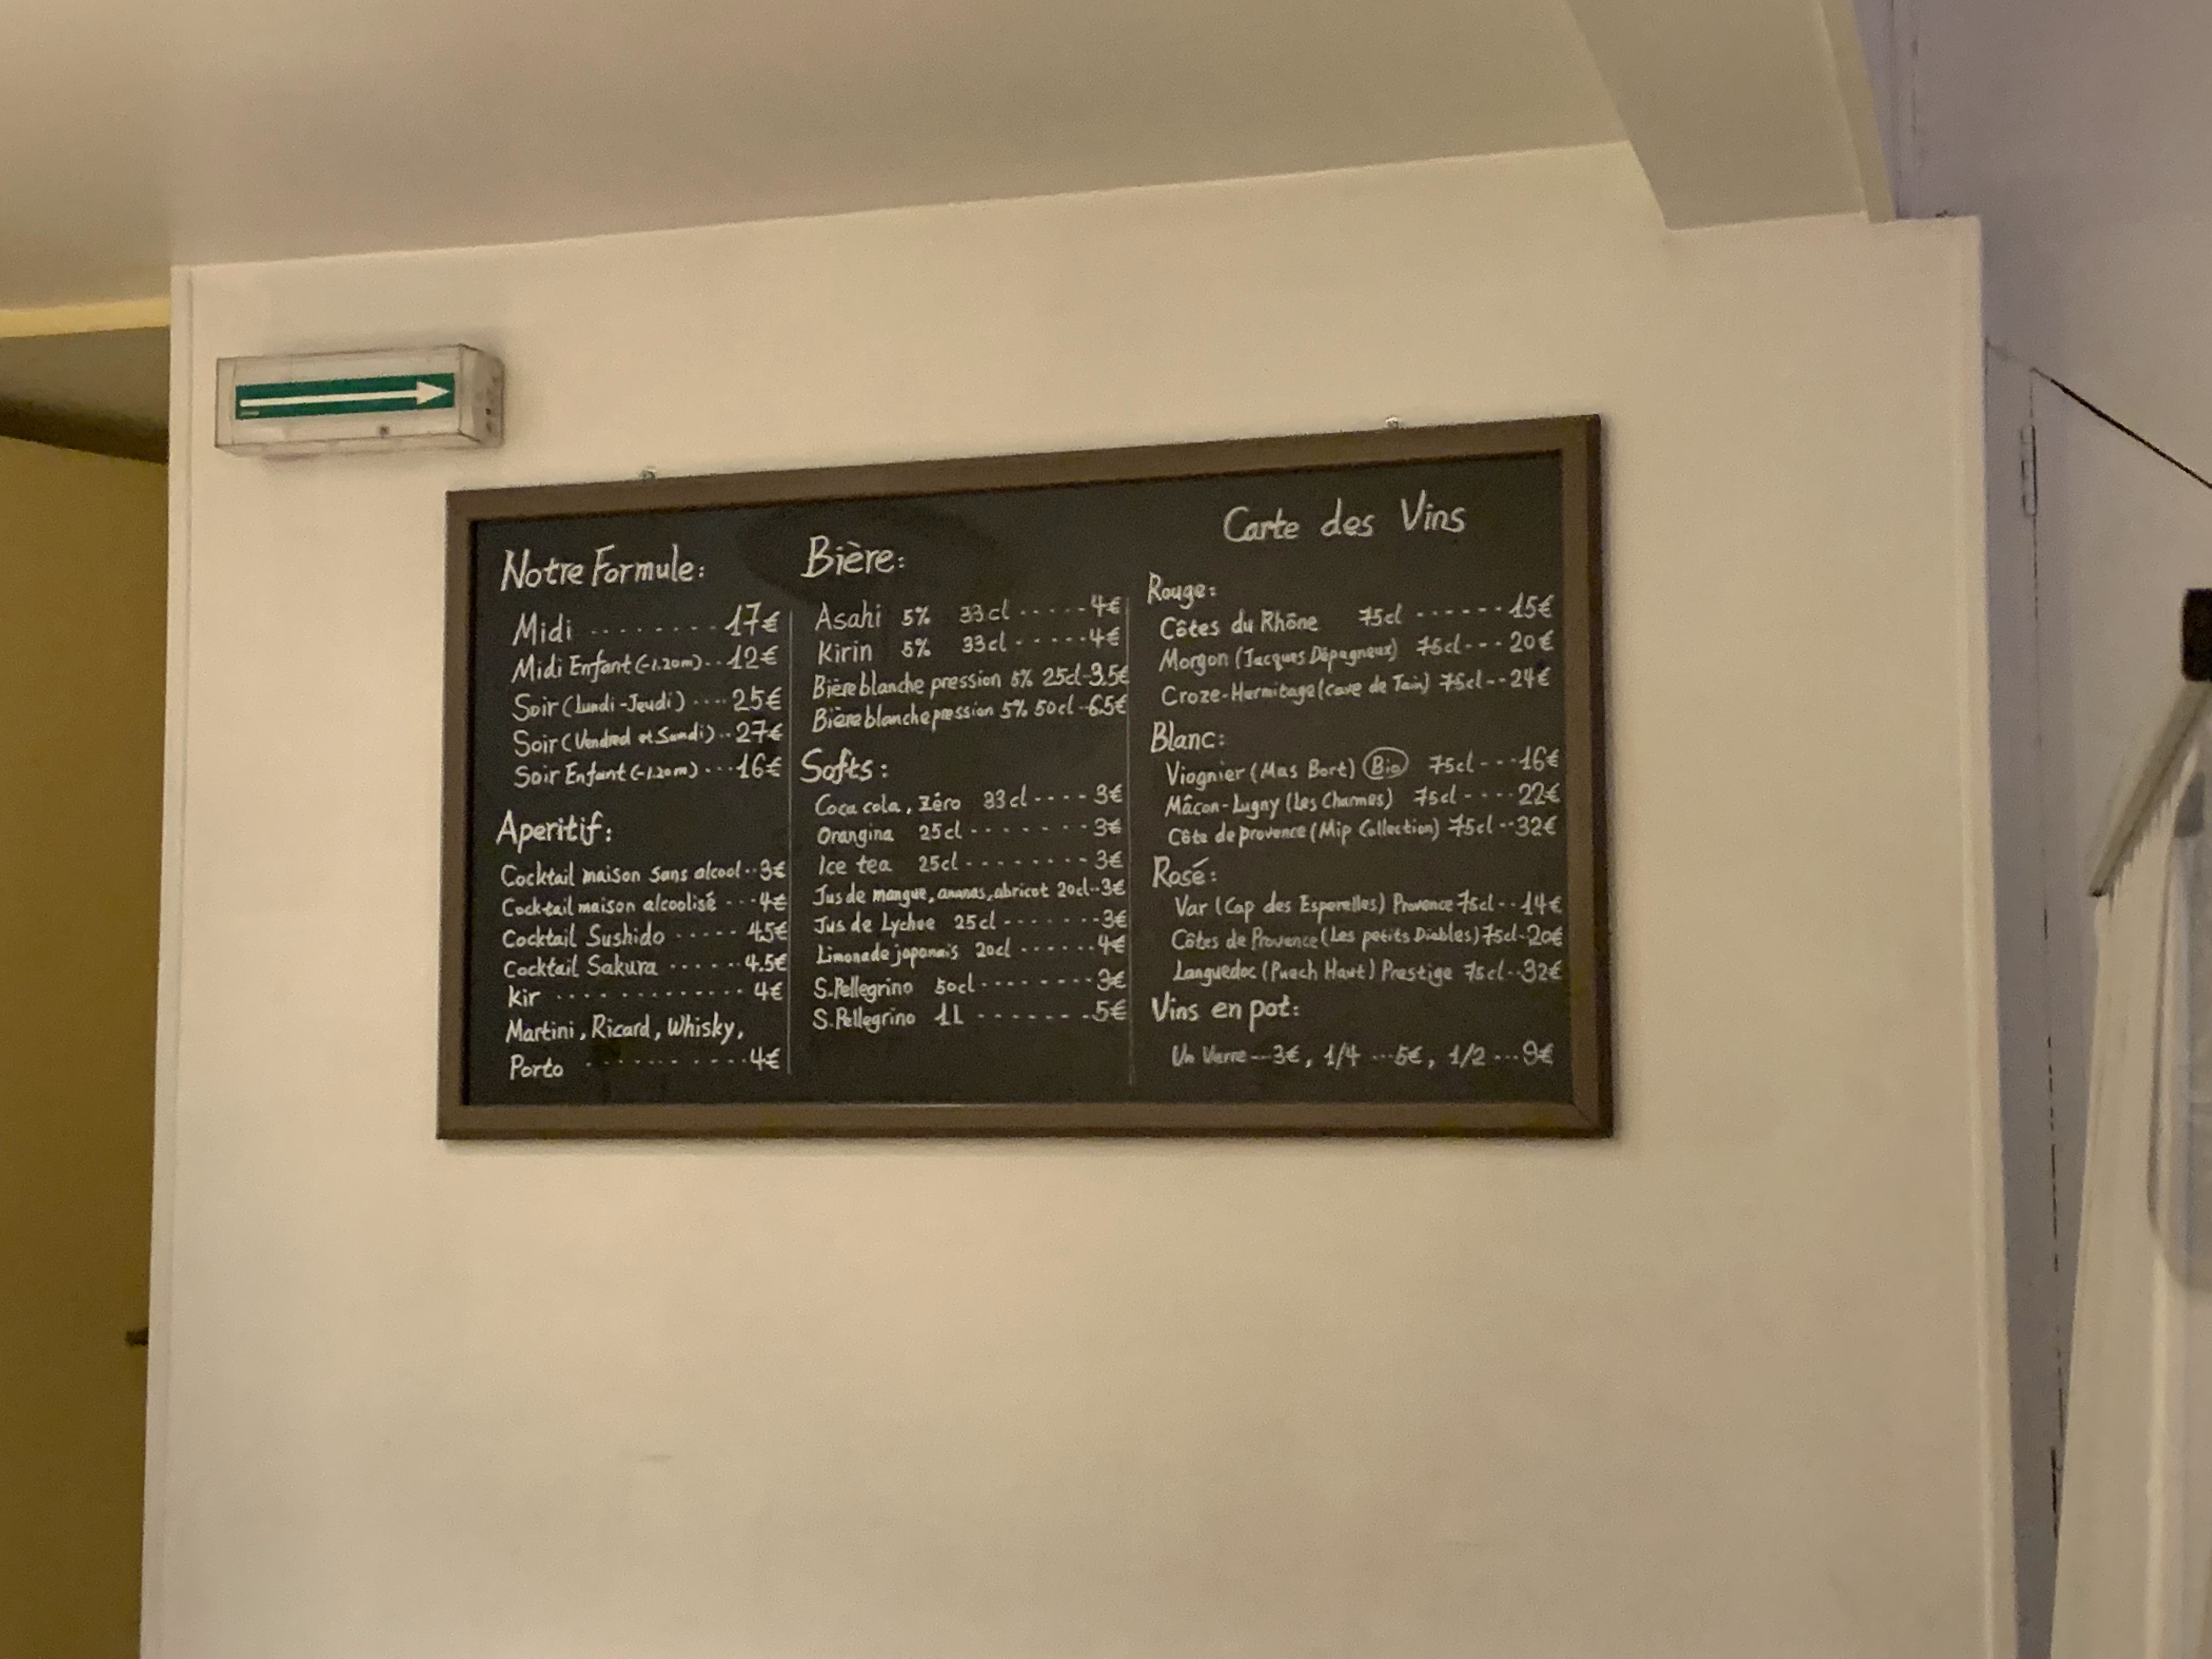 Notre Formule:
Midi ........ 17€
Midi Enfant (-1.20m) .. 12€
Soir (Lundi-Jeudi) .... 25€
Soir (Vendred et Samdi) .. 27€
Soir Enfant (-1.20m) ... 16€
Aperitif:
Cocktail maison sans alcool .. 3€
Cocktail maison alcoolisé ... 4€
Cocktail Sushido ..... 4.5€
Cocktail Sakura ...... 4.5€
Kir ............ 4€
Martini, Ricard, Whisky,
Porto .......... 4€
Bière:
Asahi 5% 33cl ..... 4€
Kirin 5% 33cl ..... 4€
Bière blanche pression 5% 25cl - 3.5€
Bière blanche pression 5% 50cl -- 6.5€
Softs:
Coca cola, Zéro 33cl .... 3€
Orangina 25cl ....... 3€
Ice tea 25cl ........ 3€
Jus de mangue, ananas, abricot 20cl .. 3€
Jus de Lychee 25cl ....... 3€
Limonade japonais 20cl ...... 4€
S.Pellegrino 50cl ........ 3€
S.Pellegrino 1L ....... 5€
Carte des Vins
Rouge:
Côtes du Rhône 75cl ...... 15€
Morgon (Jacques Dépagneux) 75cl --- 20€
Croze-Hermitage (cave de Tain) 75cl -- 24€
Blanc:
Viognier (Mas Bort) Bio 75cl --- 16€
Mâcon-Lugny (Les Charmes) 75cl .... 22€
Côte de provence (Mip Collection) 75cl -- 32€
Rosé:
Var (Cap des Esperelles) Provence 75cl -- 14€
Côtes de Provence (Les petits Diables) 75cl - 20€
Languedoc (Puech Haut) Prestige 75cl -- 32€
Vins en pot:
Un Verre --- 3€, 1/4 ... 5€, 1/2 ... 9€